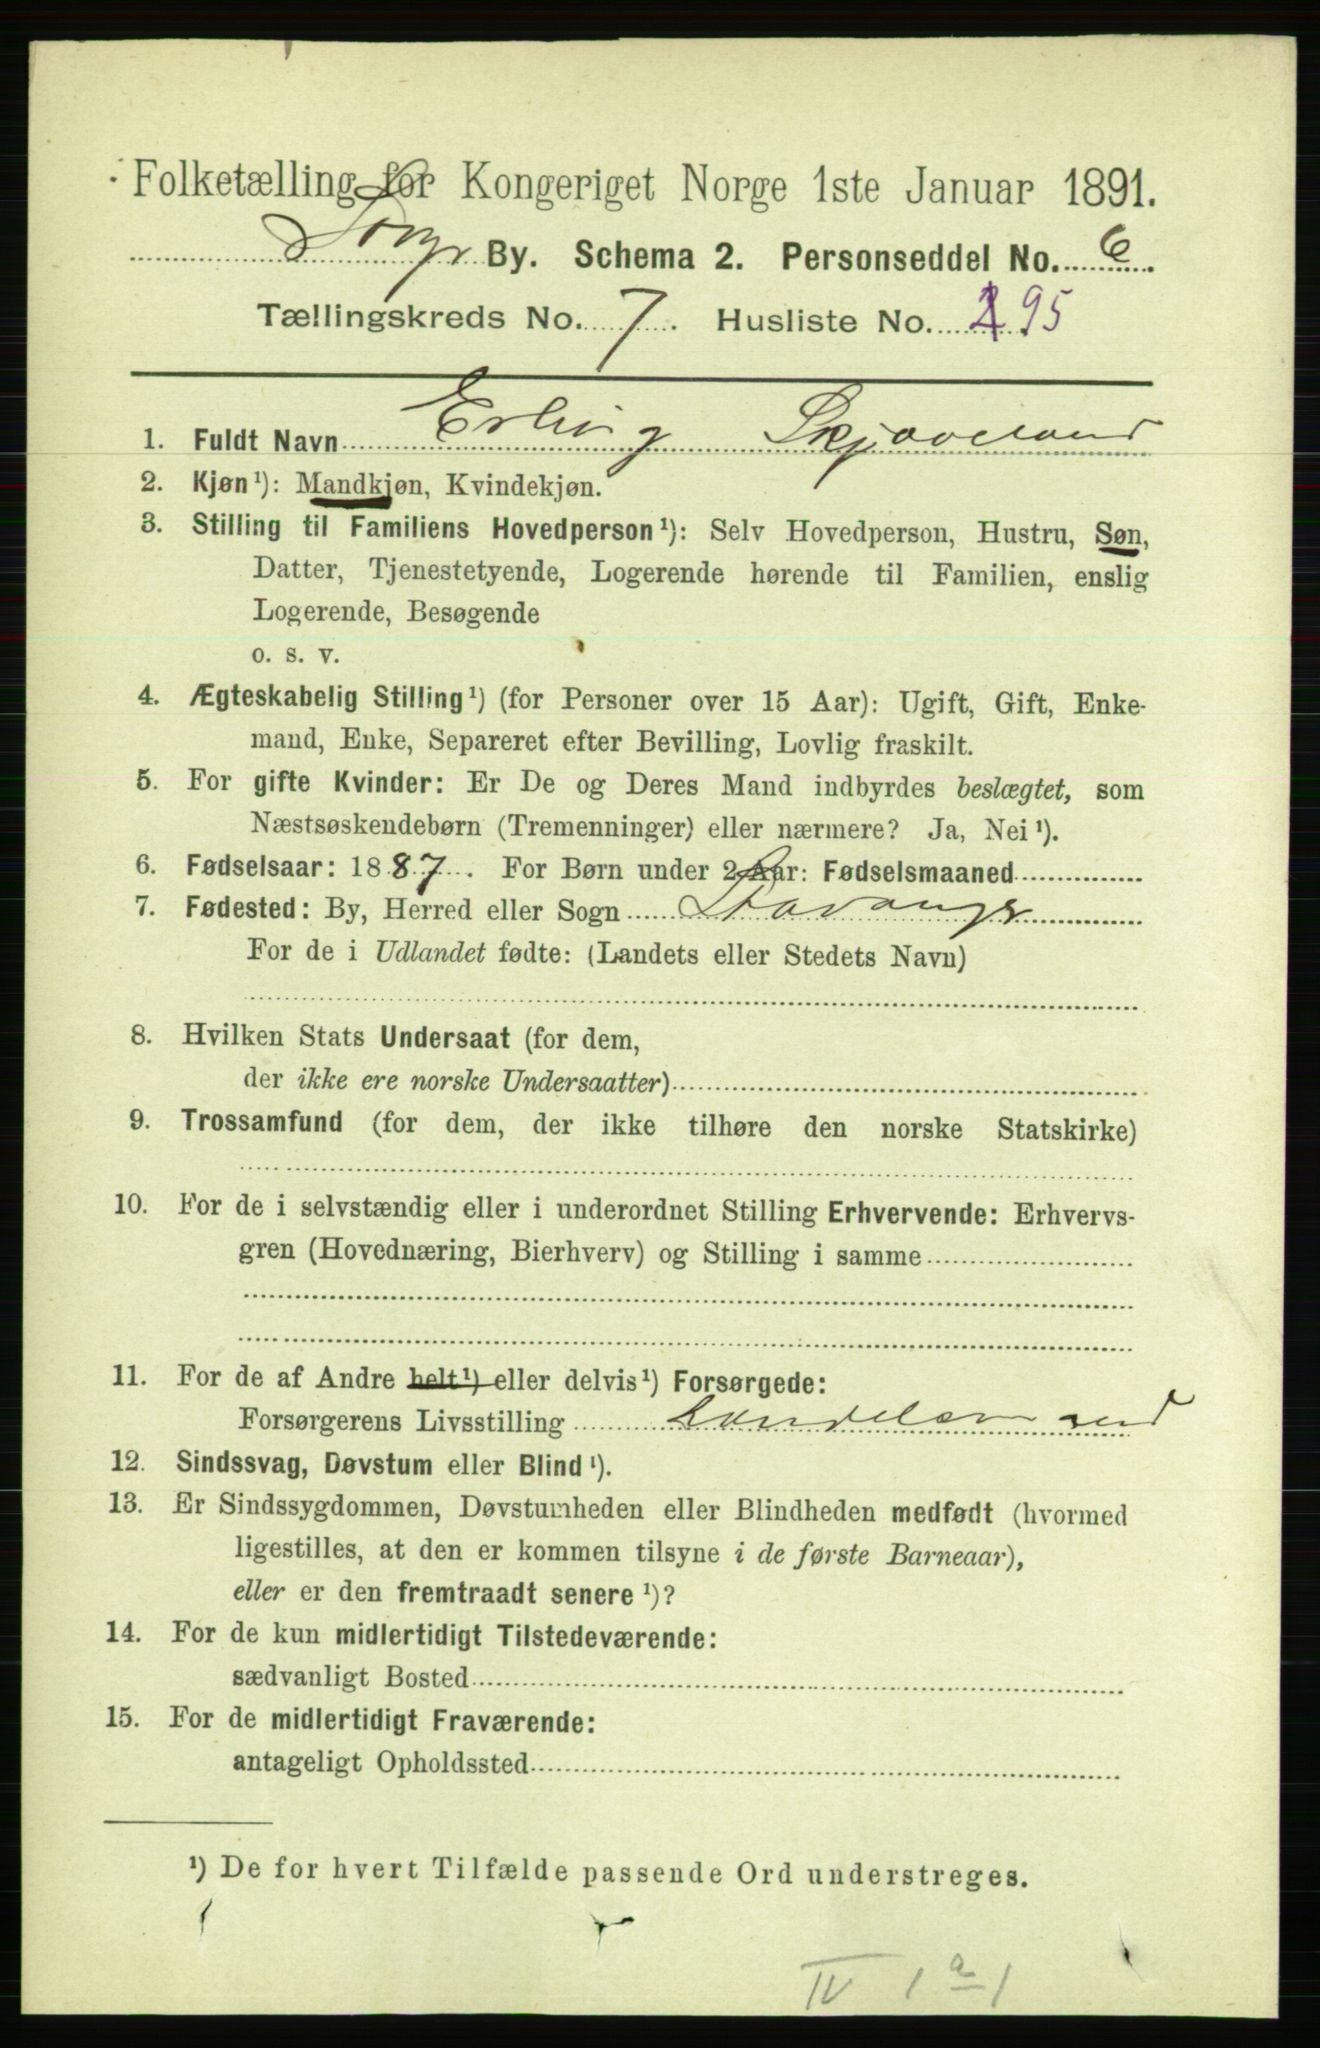 Folketælling for Kongeriget Norge 1ste Januar 1891.
By. Schema 2. Personseddel No. 6.
Tællingskreds No. 7. Husliste No. 195
1. Fuldt Navn Erling Skjaveland
2. Kjøn¹): Mandkjøn, Kvindekjøn.
3. Stilling til Familiens Hovedperson¹): Selv Hovedperson, Hustru, Søn,
Datter, Tjenestetyende, Logerende hørende til Familien, enslig
Logerende, Besøgende
o. s. v.
4. Ægteskabelig Stilling¹) (for Personer over 15 Aar): Ugift, Gift, Enke-
mand, Enke, Separeret efter Bevilling, Lovlig fraskilt.
5. For gifte Kvinder: Er De og Deres Mand indbyrdes beslægtet, som
Næstsøskendebørn (Tremenninger) eller nærmere? Ja, Nei¹).
6. Fødselsaar: 1887. For Børn under 2 Aar: Fødselsmaaned
7. Fødested: By, Herred eller Sogn Stavanger
For de i Udlandet fødte: (Landets eller Stedets Navn)
8. Hvilken Stats Undersaat (for dem,
der ikke ere norske Undersaatter)
9. Trossamfund (for dem, der ikke tilhøre den norske Statskirke)
10. For de i selvstændig eller i underordnet Stilling Erhvervende: Erhvervs-
gren (Hovednæring, Bierhverv) og Stilling i samme
11. For de af Andre helt¹) eller delvis¹) Forsørgede:
Forsørgerens Livsstilling Handelsmand
12. Sindssvag, Døvstum eller Blind¹).
13. Er Sindssygdommen, Døvstumheden eller Blindheden medfødt (hvormed
ligestilles, at den er kommen tilsyne i de første Barneaar),
eller er den fremtraadt senere¹)?
14. For de kun midlertidigt Tilstedeværende:
sædvanligt Bosted
15. For de midlertidigt Fraværende:
antageligt Opholdssted
¹) De for hvert Tilfælde passende Ord understreges.
IV 1 a 1